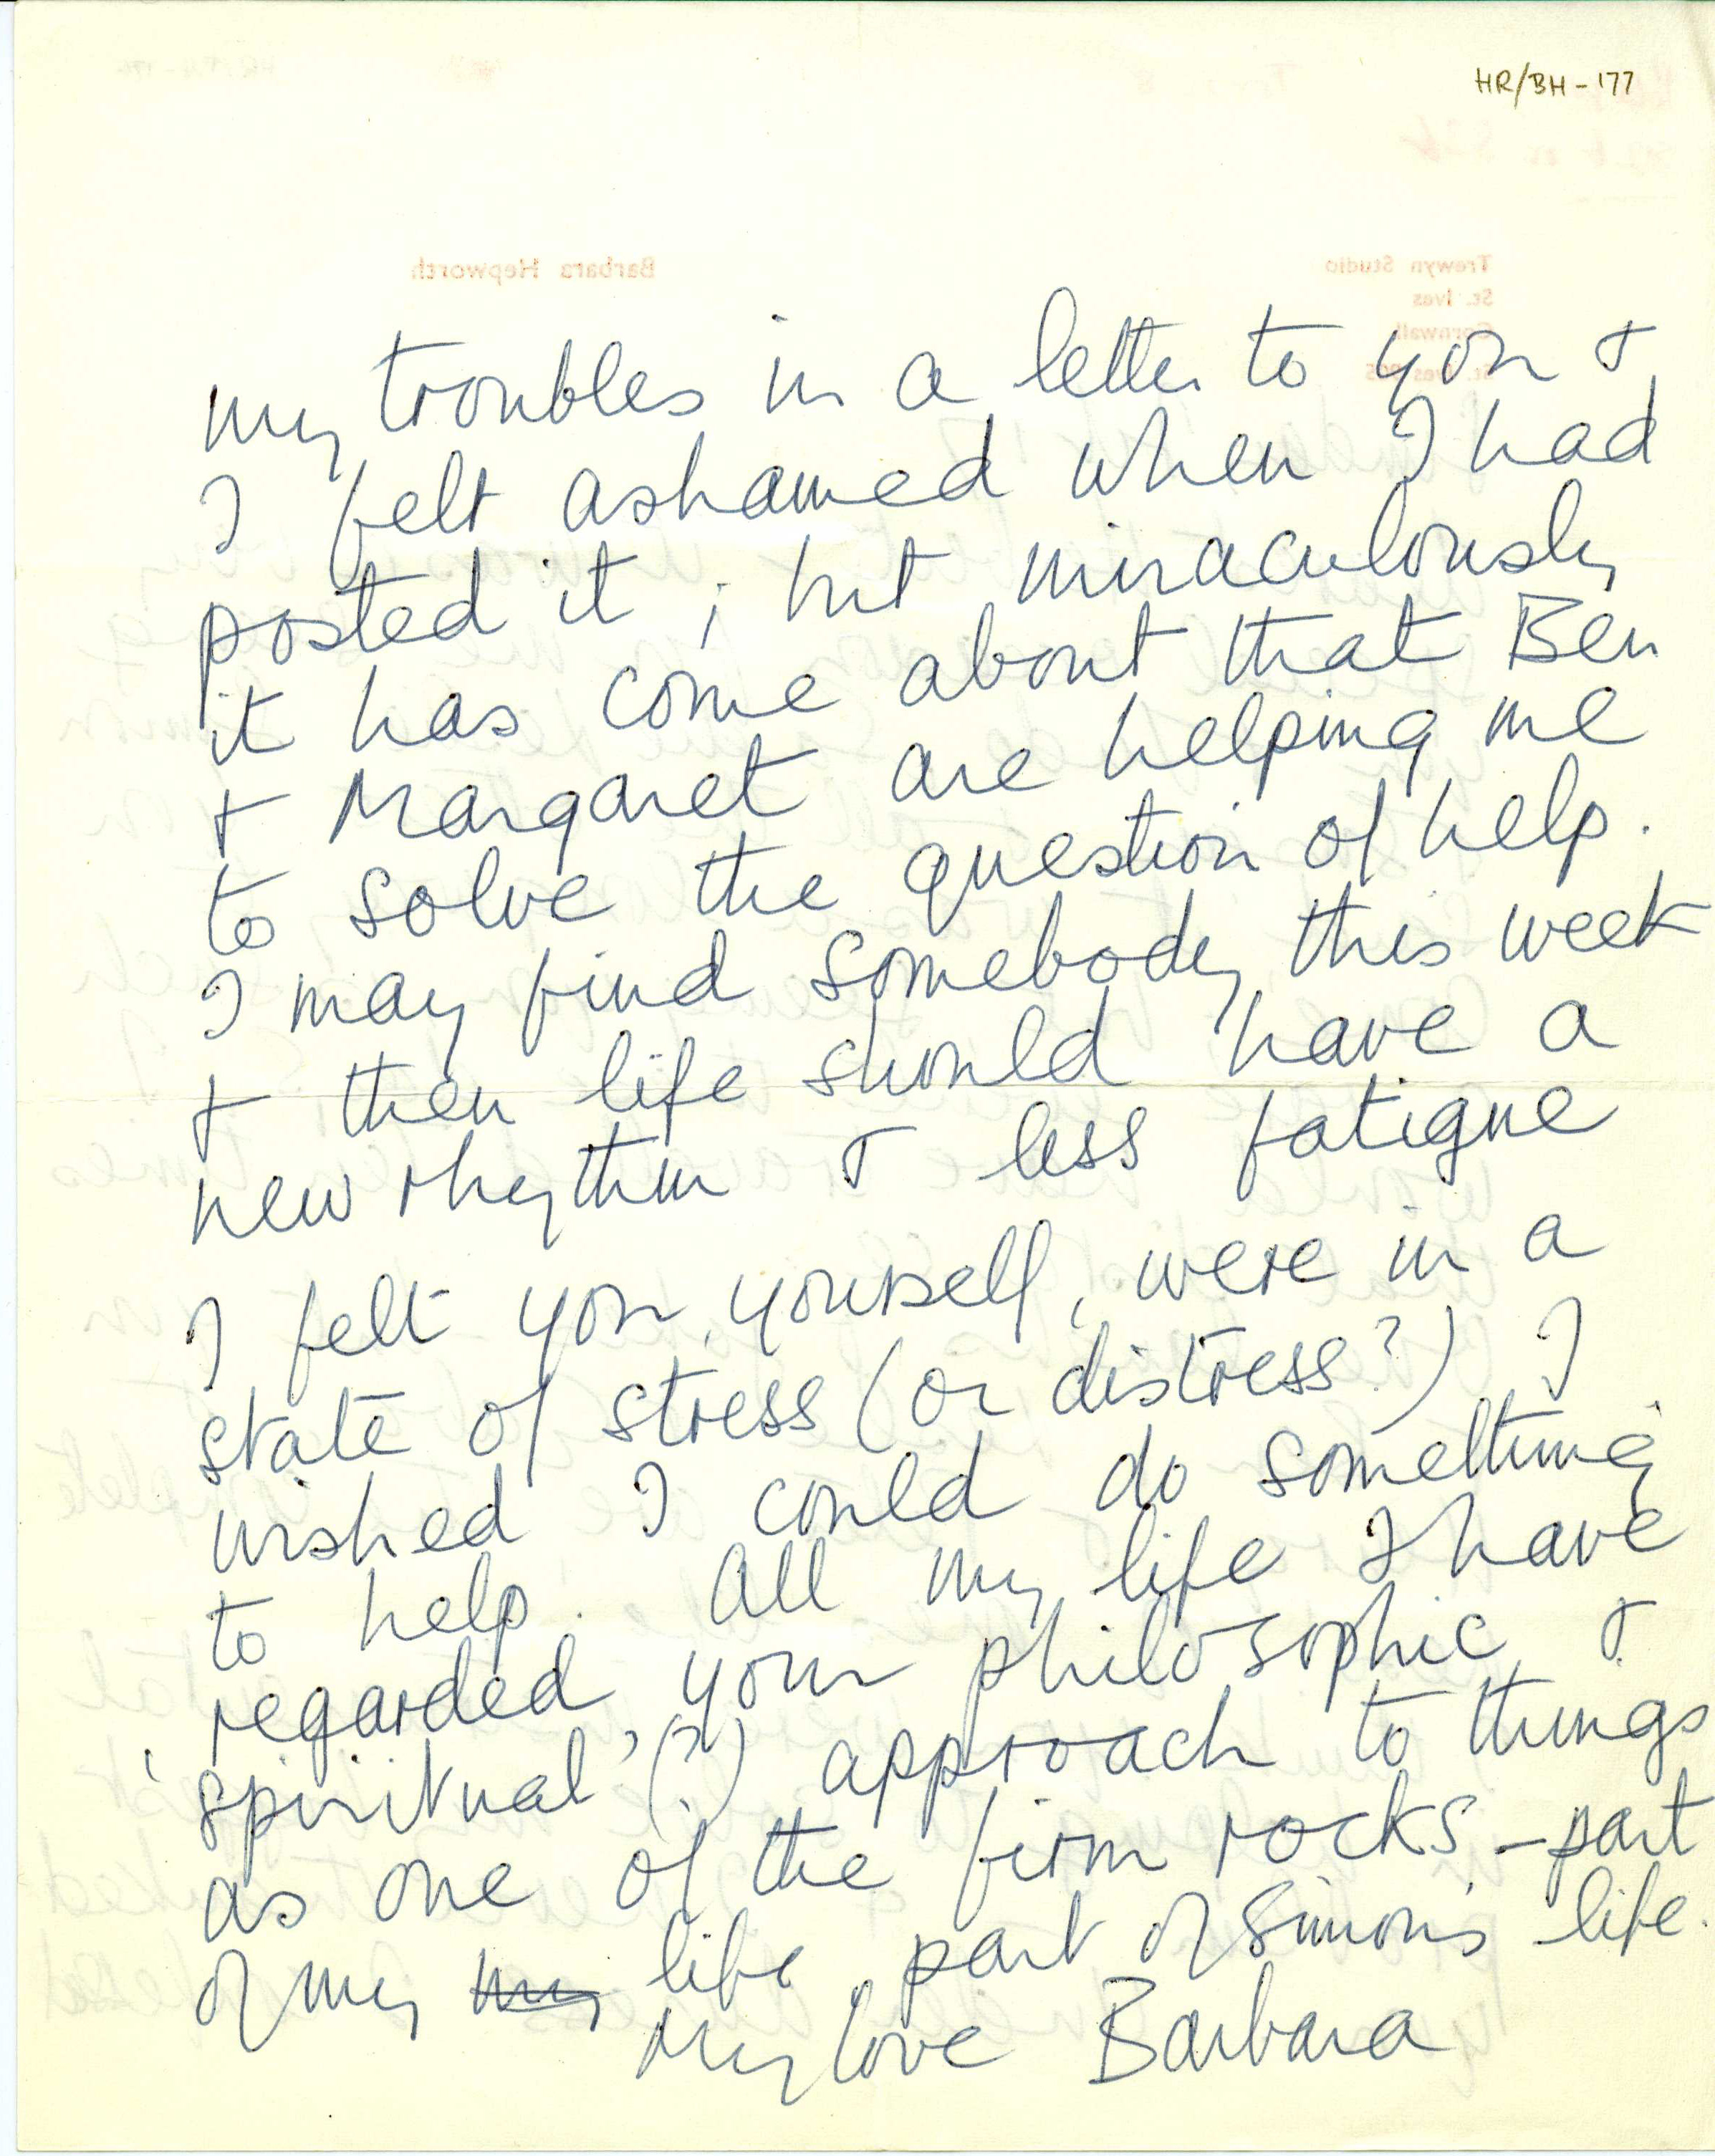 HR/BH-177
Barbara Hepworth
Trewyn Studio
St. Ives
Cornwall
my troubles in a letter to you &
I felt ashamed when I had
posted it; but miraculously
it has come about that Ben
& Margaret are helping me
to solve the question of help.
I may find somebody this week
& then life should have a
new rhythm & less fatigue
I felt you, yourself, were in a
state of stress (or distress?) I
wished I could do something
to help. All my life I have
regarded your philosophic &
'spiritual' (?) approach to things
as one of the firm rocks – part
of my my life, part of Simon's life.
My love Barbara